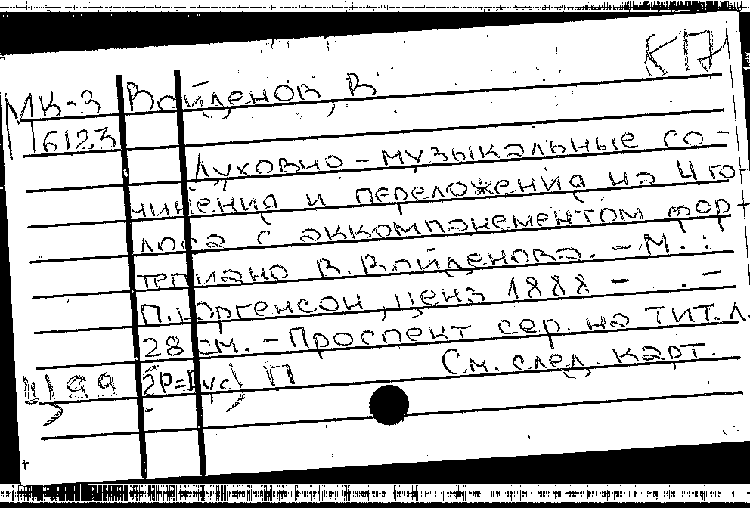 КП
МК-3 Войденов, В
6123
Духовно-музыкальные со-
чинения и переложения на 4 го-
лоса с аккомпанементом фор-
тепиано В. Войденова. - М.:
П. Юргенсон, ценз 1888 -
28 см. - Проспект сер. на тит. л.
См. след. карт.
П